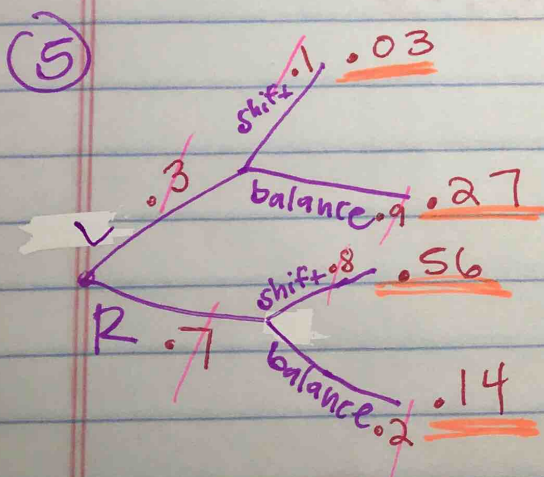 5
shift .1 .03
.3
balance .9 .27
V
shift .8 .56
R .7
balance .2 .14